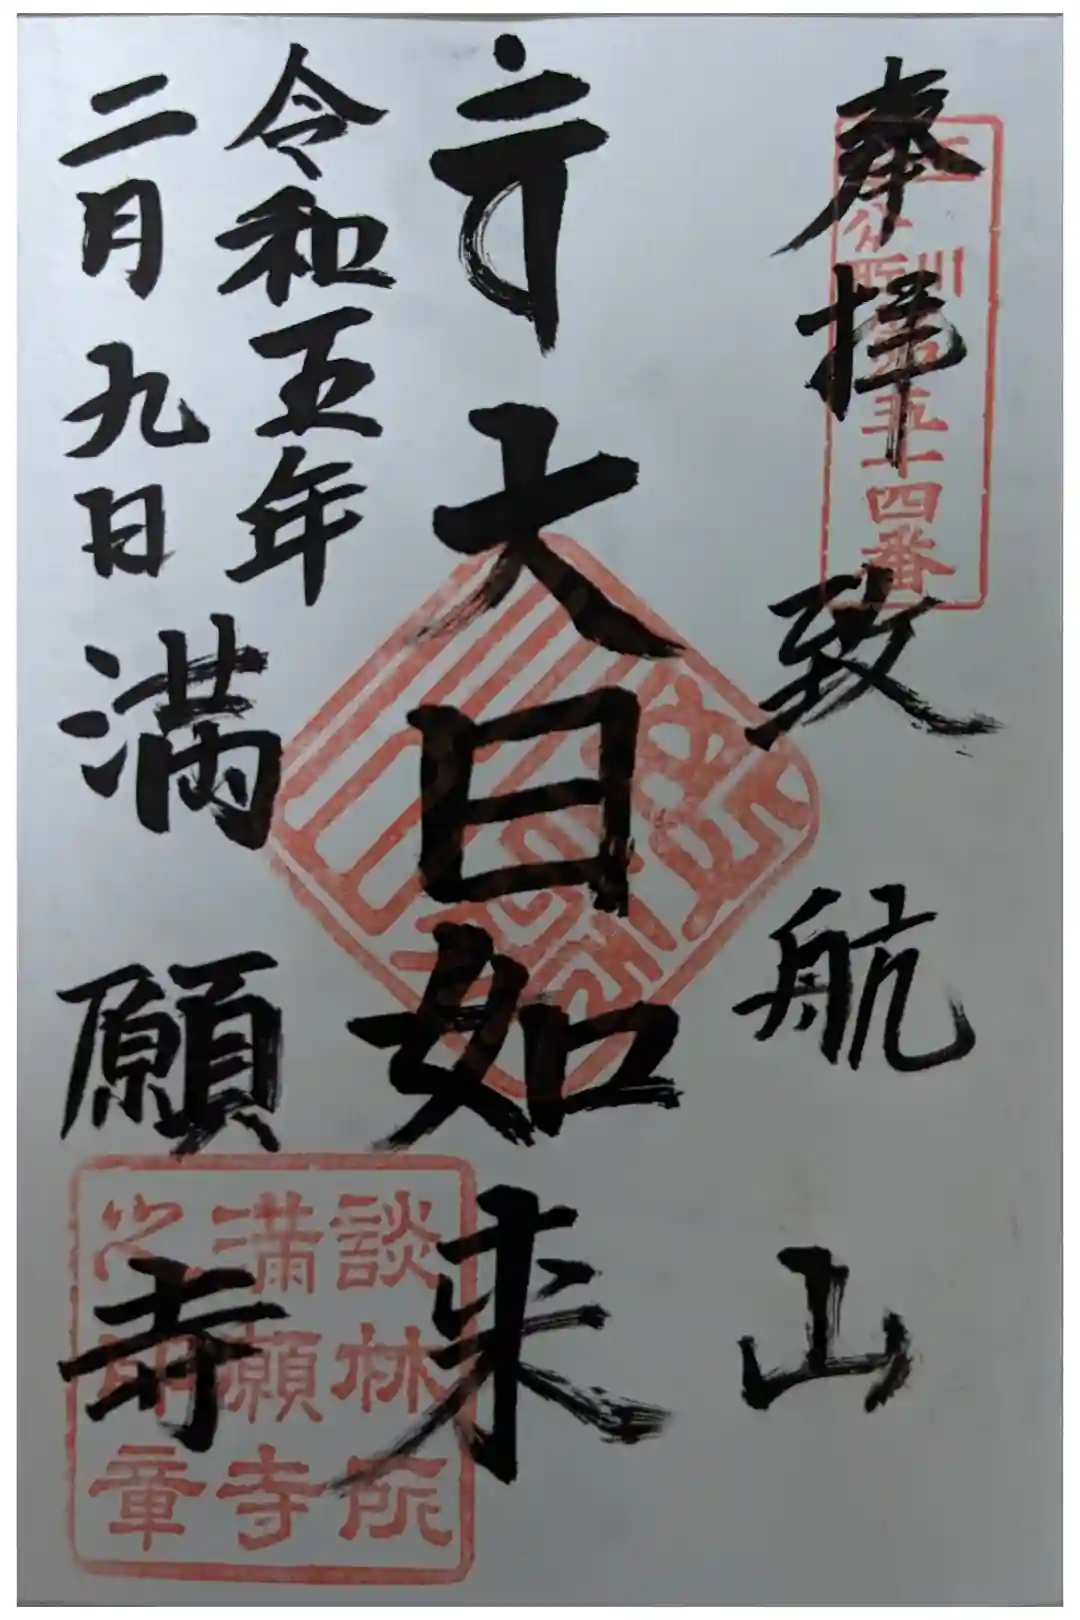 奉拝 致航山
大日如来
令和五年
二月九日 満願寺
五十四番
談林所
満願寺
印章